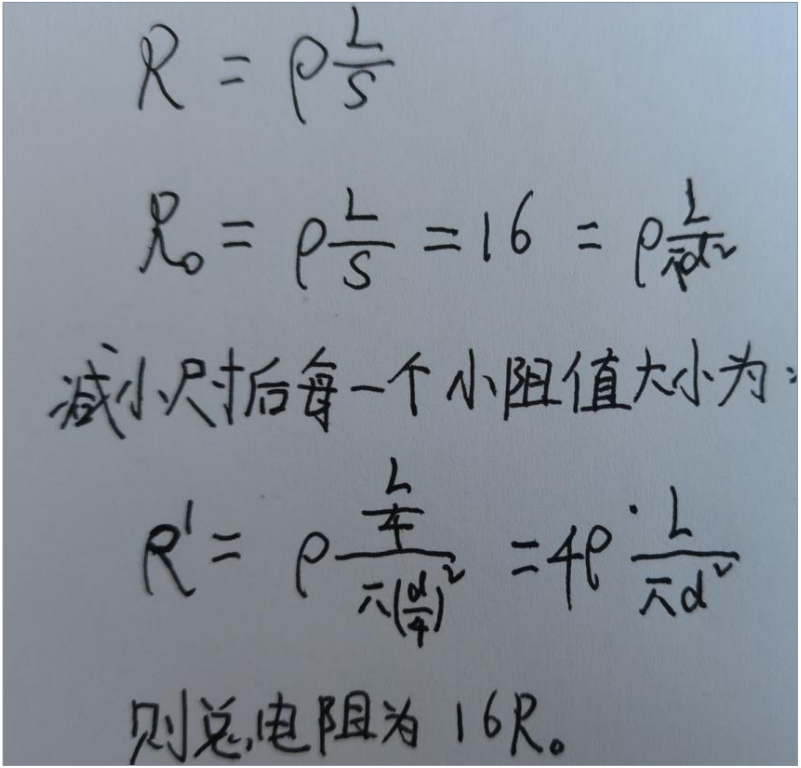 R = ρ L/S
R₀ = ρ L/S = 16 = ρ L/πd²
减小尺寸后每一个小阻值大小为：
R' = ρ (L/4)/(π(d/4)²) = 4ρ · L/πd²
则总电阻为 16R。